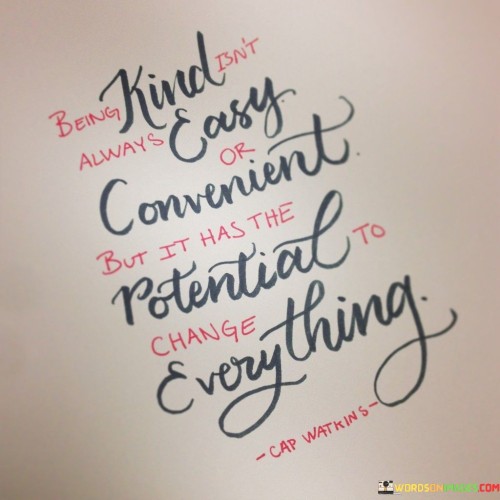 BEING Kind ISN'T
ALWAYS Easy.
OR
Convenient.
BUT IT HAS THE
Potential TO
CHANGE
Everything.
-CAP WATKINS-
WORDSONIMAGES.COM